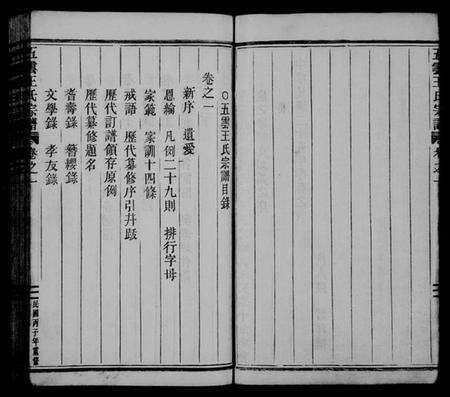 五雲王氏宗譜
○五雲王氏宗譜目錄
卷之一
新序 遺愛
恩綸 凡例二十九則 排行字母
家範 家訓十四條
戒語 歷代纂修序引幷跋
歷代訂譜領存原例
歷代纂修題名
耆壽錄 簪纓錄
文學錄 孝友錄
五雲王氏宗譜 卷之一
民國丙子年重修